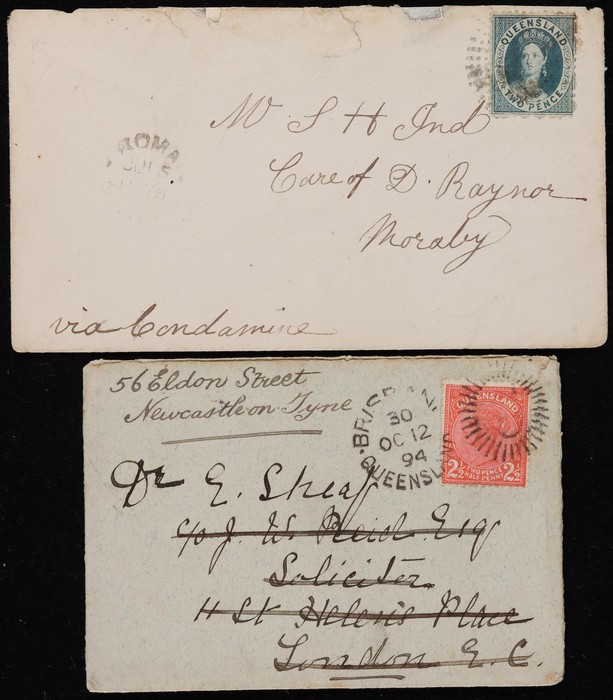 QUEENSLAND
TWO PENCE
ROMA
Mr S H Ind
Care of D. Raynor
Moraby
via Condamine
56 Eldon Street
Newcastle on Tyne
BRISBANE
30
OC 12
94
QUEENSLAND
QUEENSLAND
2½ TWO PENCE HALF PENNY 2½
Dr E. Sheaf
c/o J. W. Reid Esq
Soliciter
11 St Helen's Place
London E.C.